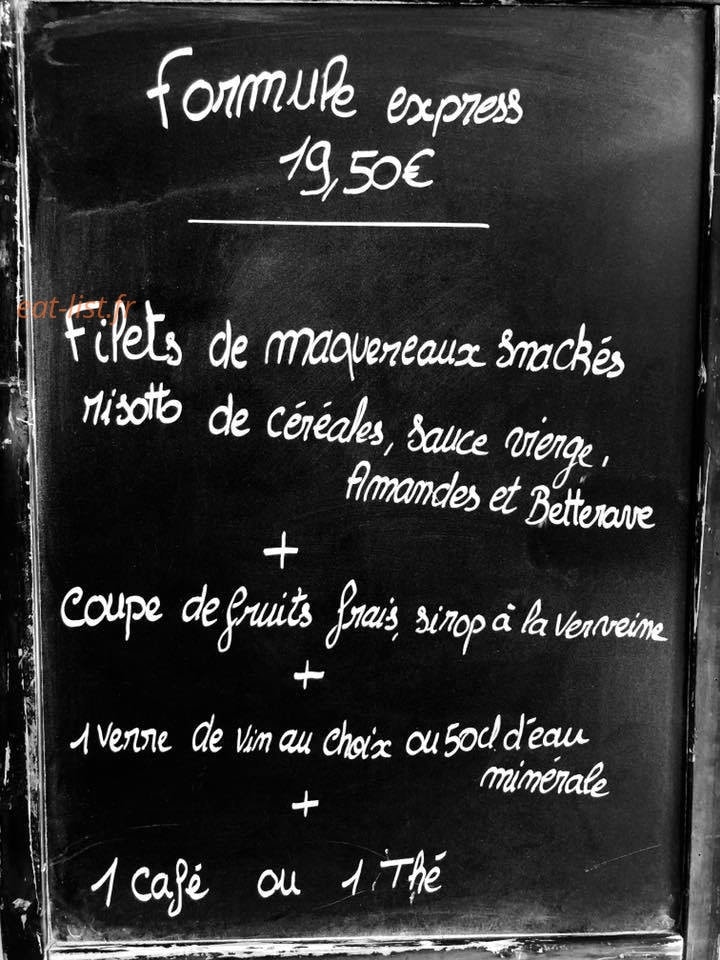 Formule express
19,50€
eat-list.fr
Filets de maquereaux snackés
risotto de céréales, sauce vierge,
Amandes et Betterave
+
Coupe de fruits frais, sirop à la verveine
+
1 verre de vin au choix ou 50cl d'eau
minérale
+
1 café ou 1 Thé